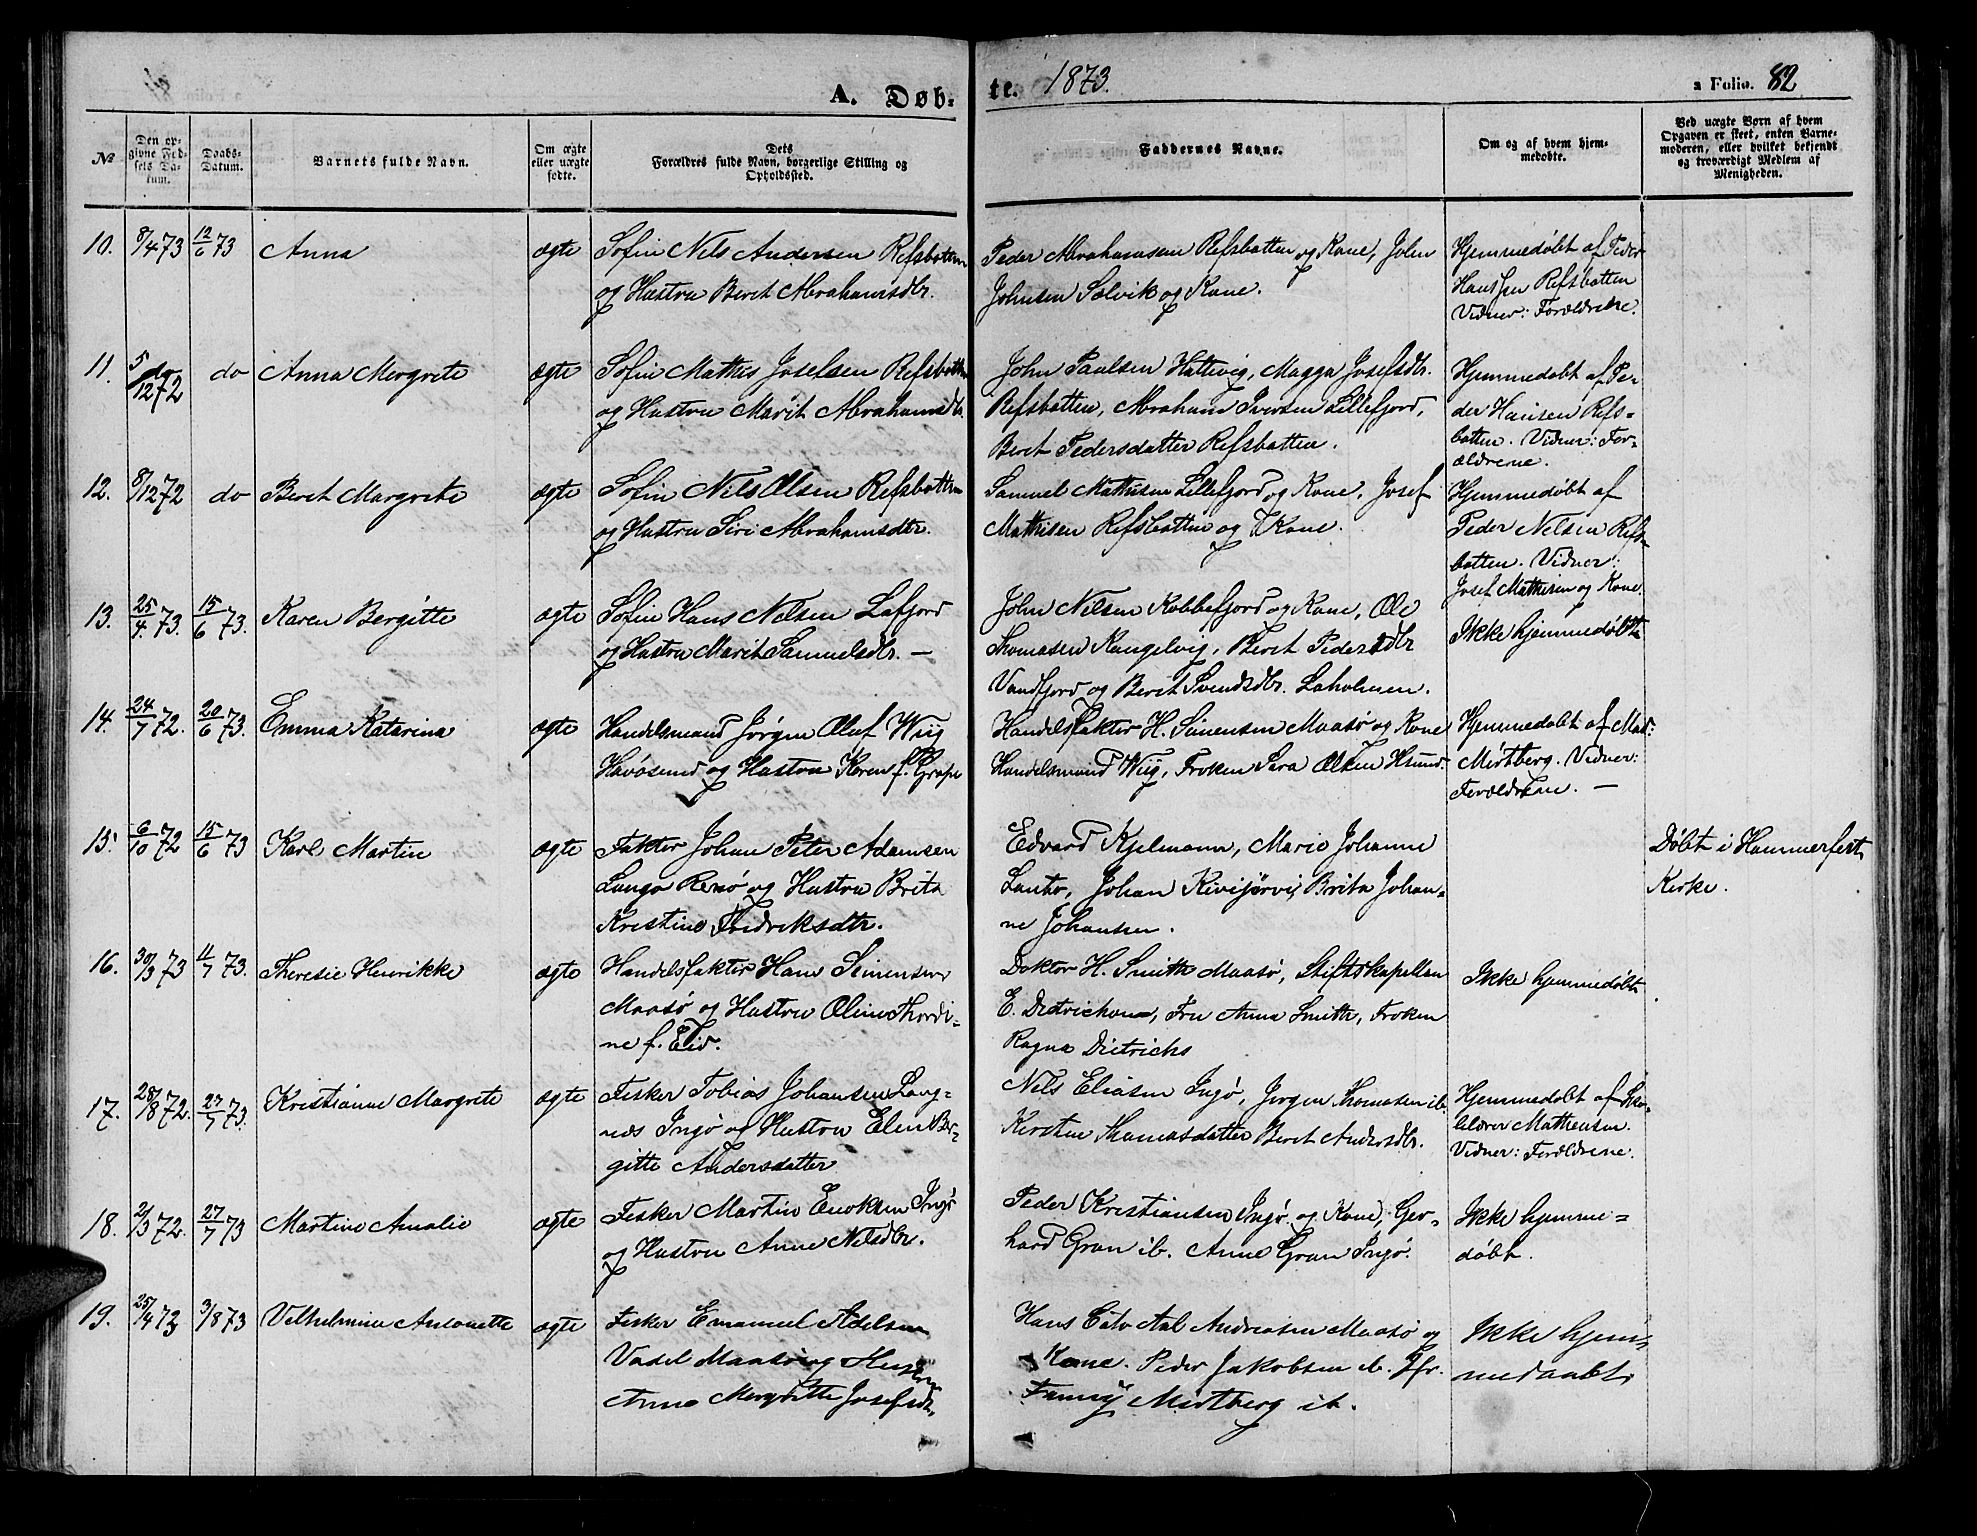 A. Døb-
te. 1873.
a Folio. 82
No
Den op-
givne Fød-
sels Da-
tum.
Daabs-
Datum.
Barnets fulde Navn.
Om ægte
eller uægte
fødte.
Dets
Forældres fulde Navn, borgerlige Stilling og
Opholdssted.
Faddernes Navne.
Om og af hvem hjem-
medøbte.
Ved uægte Børn af hvem
Opgaven er skeet, enten Barne-
moderen, eller hvilket bekjendt
og troværdigt Medlem af
Menigheden.
10. 8/4 73 12/6 73 Anna ægte Sofin Nils Andersen Refsbotten
og Hustru Beret Abrahamsdtr.
Peder Abrahamsen Refsbotten og Kone, John
Johnsen Selvik og Kone.
Hjemmedøbt af Peder
Hansen Refsbotten
Vidner: Forældrene.
11. 5/12 72 do Anna Margrete ægte Sofin Mathis Josefsen Refsbotten
og Hustru Marit Abrahamsdtr.
John Paulsen Hattevig, Magga Josefsdtr.
Refsbotten, Abraham Iversen Lillefjord,
Beret Pedersdatter Refsbotten.
Hjemmedøbt af Pe-
der Hansen Refs-
botten. Vidner: For-
ældrene.
12. 8/12 72 do Beret Margrete ægte Sofin Nils Olsen Refsbotten
og Hustru Siri Abrahamsdtr.
Samuel Mathisen Lillefjord og Kone, Josef
Mathisen Refsbotten og Kone.
Hjemmedøbt af
Peder Nilsen Refs-
botten. Vidner:
Josef Mathisen og Kone.
13. 25/4 73. 15/6 73. Karen Bergitte ægte Sofin Hans Nilsen Lafjord
og Hustru Marit Samuelsdtr. —
John Nilsen Kobbefjord og Kone, Ole
Thomasen Kangelvig, Beret Pedersdtr
Vandfjord og Beret Svendsdtr. Laholmen.
Ikke hjemmedøbt
14. 24/7 72. 20/6 73. Emma Katarina ægte Handelsmand Jørgen Oluf Wiig
Havøsund og Hustru Karen f. Grape
Handelsfaktor H. Simensen Maasø og Kone
Handelsmand Wiig, Frøken Sara Olsen Hsund.
Hjemmedøbt af Mad:
Mörtberg. Vidner:
Forældrene. —
15. 6/10 72 15/6 73 Karl Martin ægte Faktor Johan Peter Adamsen
Lango Refsø og Hustru Brita
Kristine Fredriksdtr.
Edvard Kjelmann, Marie Johanne
Lanto, Johan Kivijervi, Brita Johan-
ne Johansen.
Døbt i Hammerfest
Kirke.
16. 30/3 73 11/7 73. Theresie Henrikke ægte Handelsfaktor Hans Simensen
Maasø og Hustru Oline Thordi-
ne f. Eid.
Doktor H. Smith Maasø, Stiftskapellan
E. Dietrichson, Fru Anna Smith, Frøken
Ragna Dietrichs
Ikke hjemmedøbt
17. 28/8 72. 27/7 73. Kristianne Margrete ægte Fisker Tobias Johansen Lang-
næs Ingø og Hustru Elen Ber-
gitte Andersdatter
Nils Eliasen Ingø, Jørgen Thomasen ib.
Kirsten Thomasdatter Beret Andersdtr.
Hjemmedøbt af Sko-
lelærer Mathiesen.
Vidner: Forældrene.
18. 21/3 72. 27/7 73 Martine Amalie ægte Fisker Martin Enoksen Ingø
og Hustru Anne Nilsdtr.
Peder Kristiansen Ingø og Kone, Ger-
hard Gran ib. Anne Gran Ingø.
Ikke hjemme-
døbt.
19. 25/4 73 3/8 73 Vilhelmine Antonette ægte Fisker Emanuel Adelsen
Vadel Maasø og Hustru
Anne Margritte Josefsdtr.
Hans Andreasen Maasø og
Kone. Peder Jakobsen ib. Jfr.
Fanny Mörtberg ib.
Ikke hjem-
medaabt